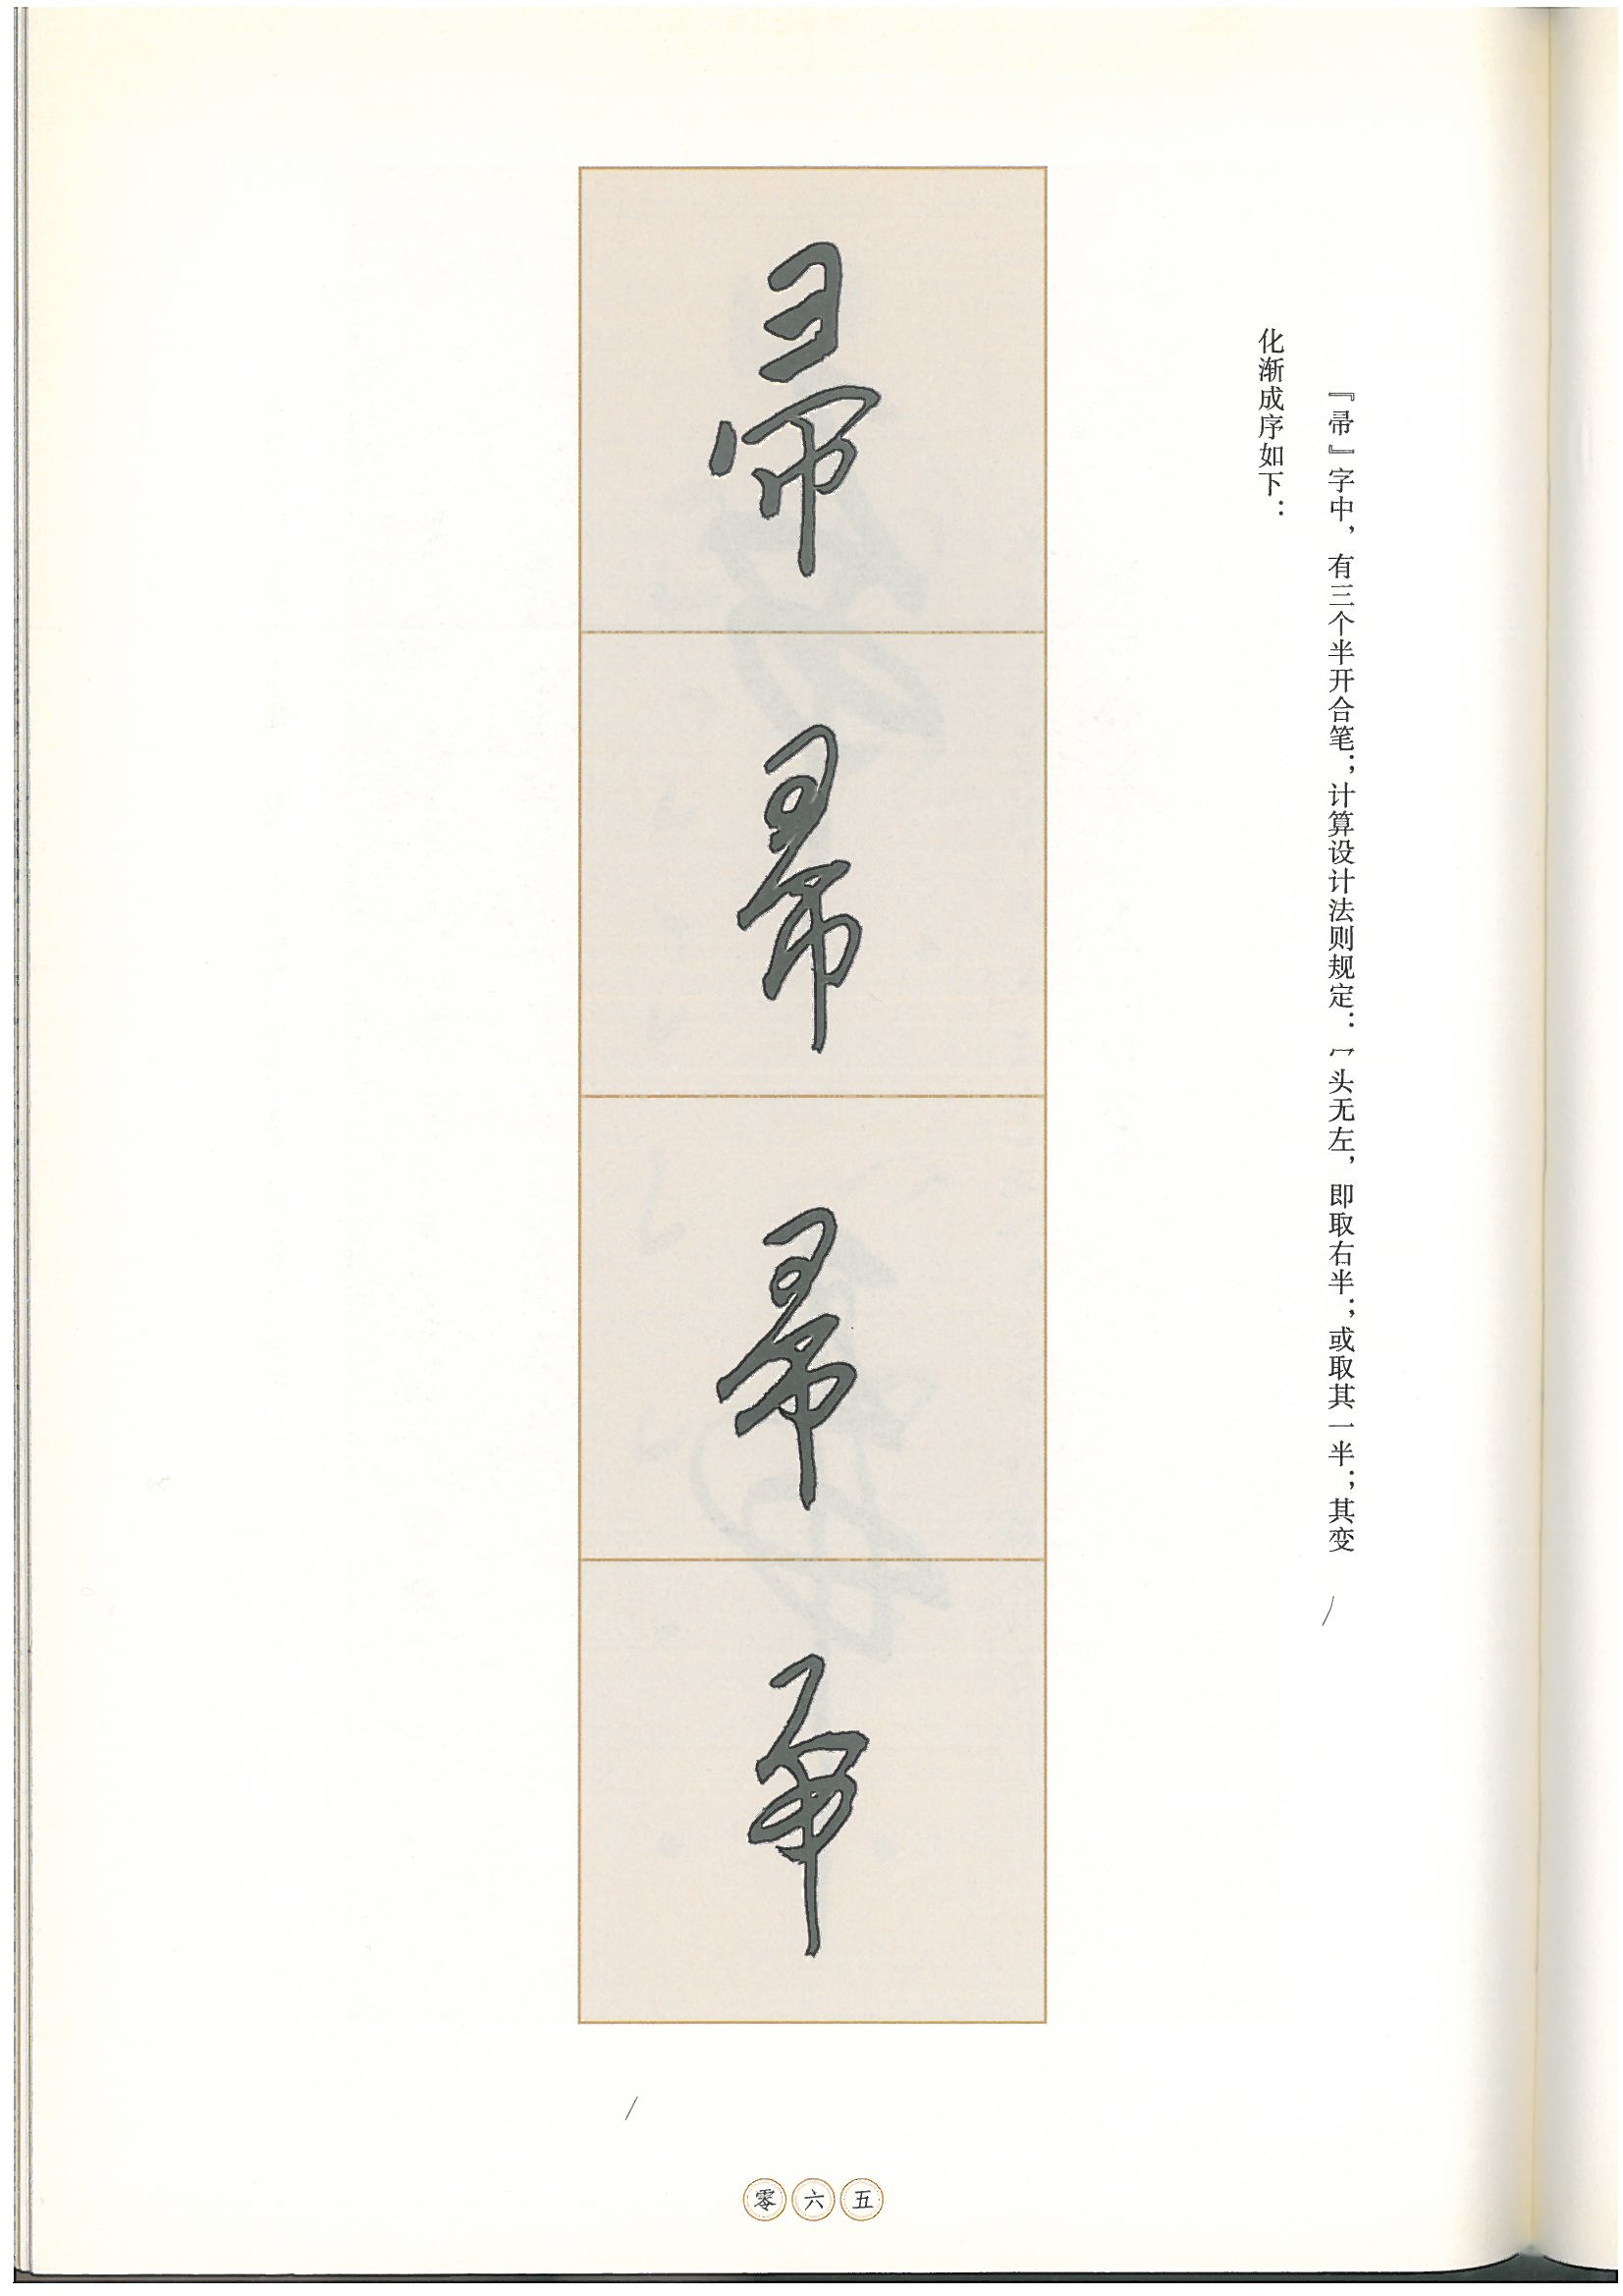 『帚』字中，有三个半开合笔；计算设计法则规定：冖头无左，即取右半；或取其一半；其变
化渐成序如下：
帚
帚
帚
帚
零六五